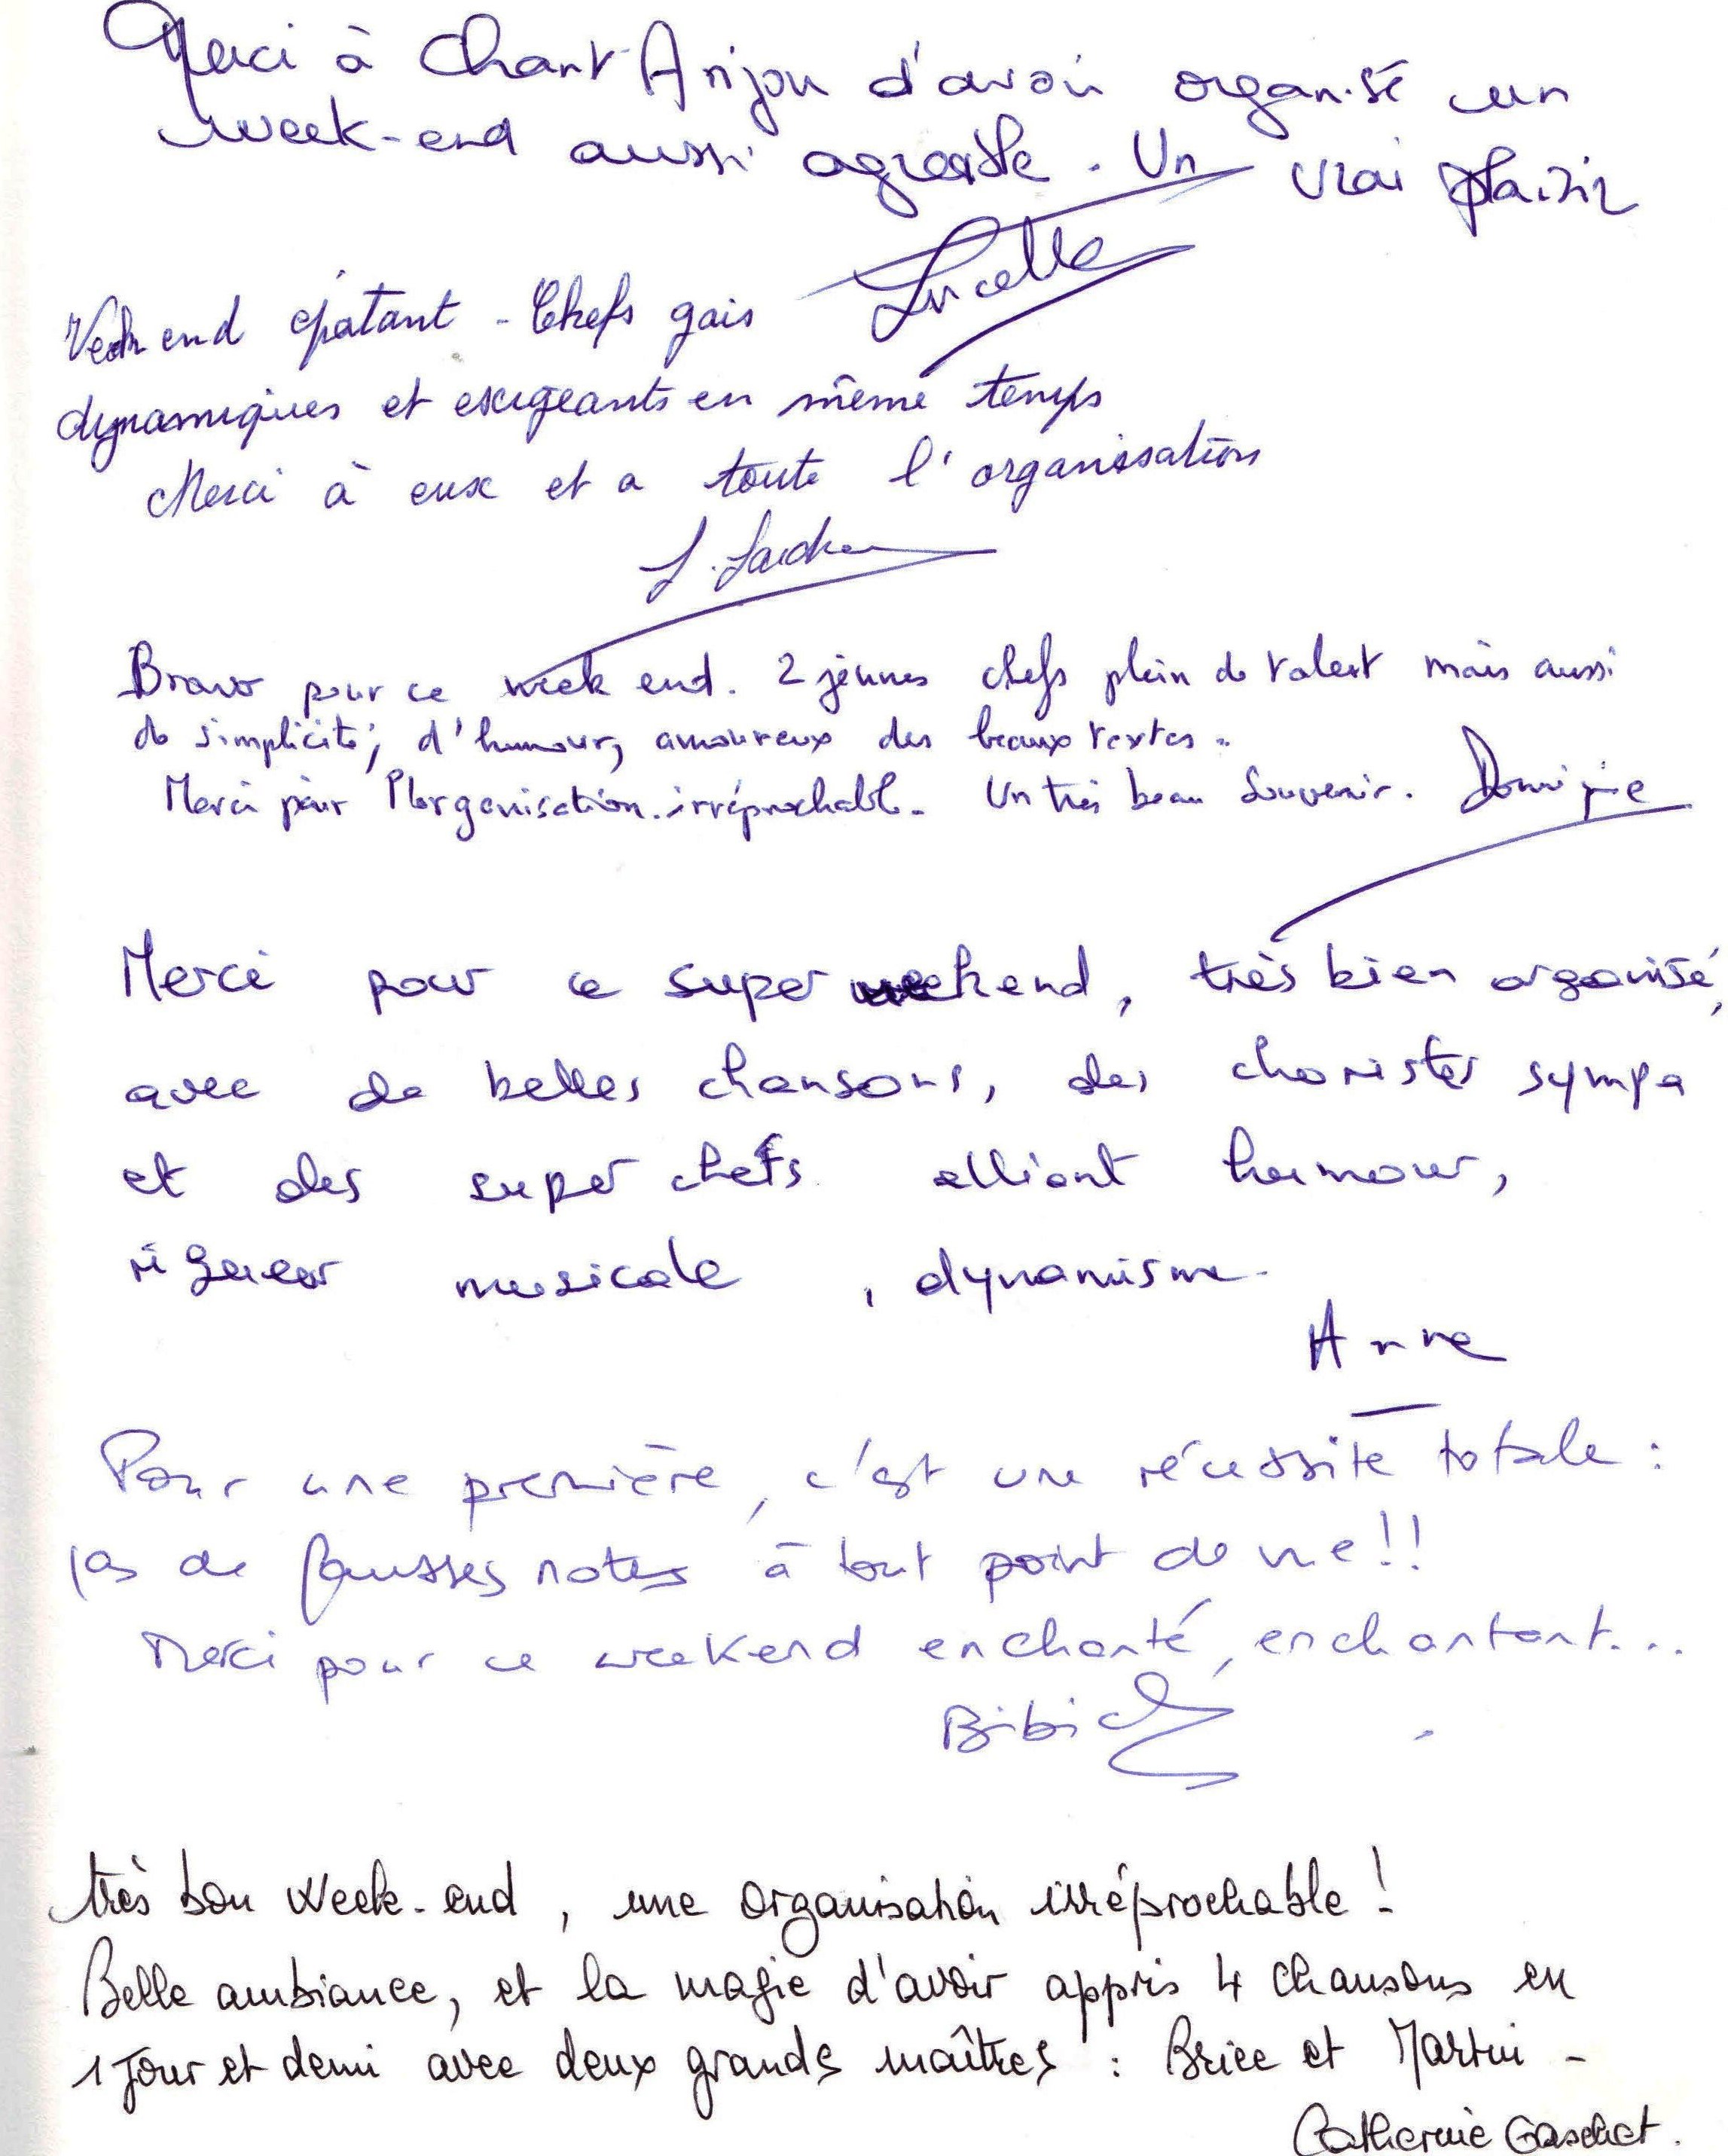 Merci à Chant'Anjou d'avoir organisé un
week-end aussi agréable. Un vrai plaisir
Week end épatant - Chefs gais
dynamiques et exigeants en même temps
Merci à eux et a toute l'organisation
Bravo pour ce week end. 2 jeunes chefs plein de talent mais aussi
de simplicité, d'humour, amoureux des beaux textes.
Merci pour l'organisation irréprochable. Un très beau souvenir. Dominique
Merci pour ce super weekend, très bien organisé,
avec de belles chansons, des choristes sympa
et des super chefs alliant humour,
rigueur musicale, dynamisme.
Anne
Pour une première, c'est une réussite totale :
pas de fausses notes à tout point de vue !!
Merci pour ce weekend enchanté, enchantant...
Bibi
très bon week-end, une organisation irréprochable !
Belle ambiance, et la magie d'avoir appris 4 chansons en
1 jour et demi avec deux grands maîtres : Brice et Martin -
Catherine Gaschet.